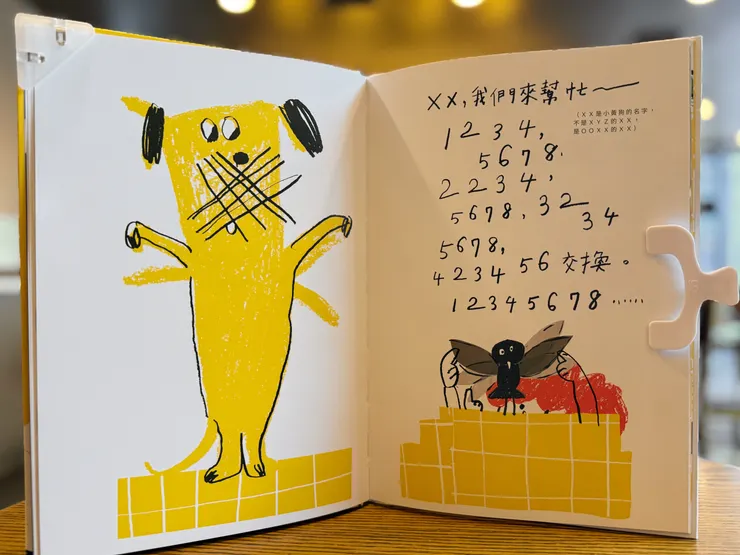 XX,我們來幫忙～
(XX是小黃狗的名字,
不是XYZ的XX,
是OOXX的XX)
1 2 3 4,
5 6 7 8.
2 2 3 4,
5 6 7 8, 3 2
3 4
5 6 7 8,
4 2 3 4 5 6 交換。
1 2 3 4 5 6 7 8 ……